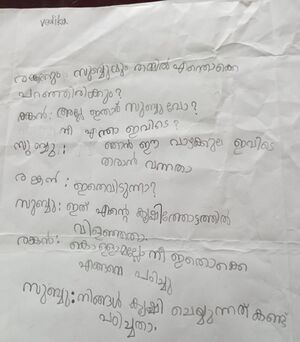 vedika
രങ്കനും സുബ്ബുവും തമ്മിൽ എന്തൊക്കെ
പറഞ്ഞിരിക്കും?
രങ്കൻ: അല്ല ഇതാര് സുബ്ബുവോ?
നീ എന്താ ഇവിടെ?
സുബ്ബു: ഞാൻ ഈ വാഴക്കുല ഇവിടെ
തരാൻ വന്നതാ
രങ്കന്: ഇതെവിടുന്നാ?
സുബ്ബു: ഇത് എന്റെ കൃഷിത്തോട്ടത്തിൽ
വിളഞ്ഞതാ.
രങ്കൻ: കൊള്ളാമല്ലോ നീ ഇതൊക്കെ
എങ്ങനെ പഠിച്ചു
സുബ്ബു: നിങ്ങൾ കൃഷി ചെയ്യുന്നത് കണ്ട്
പഠിച്ചതാ.